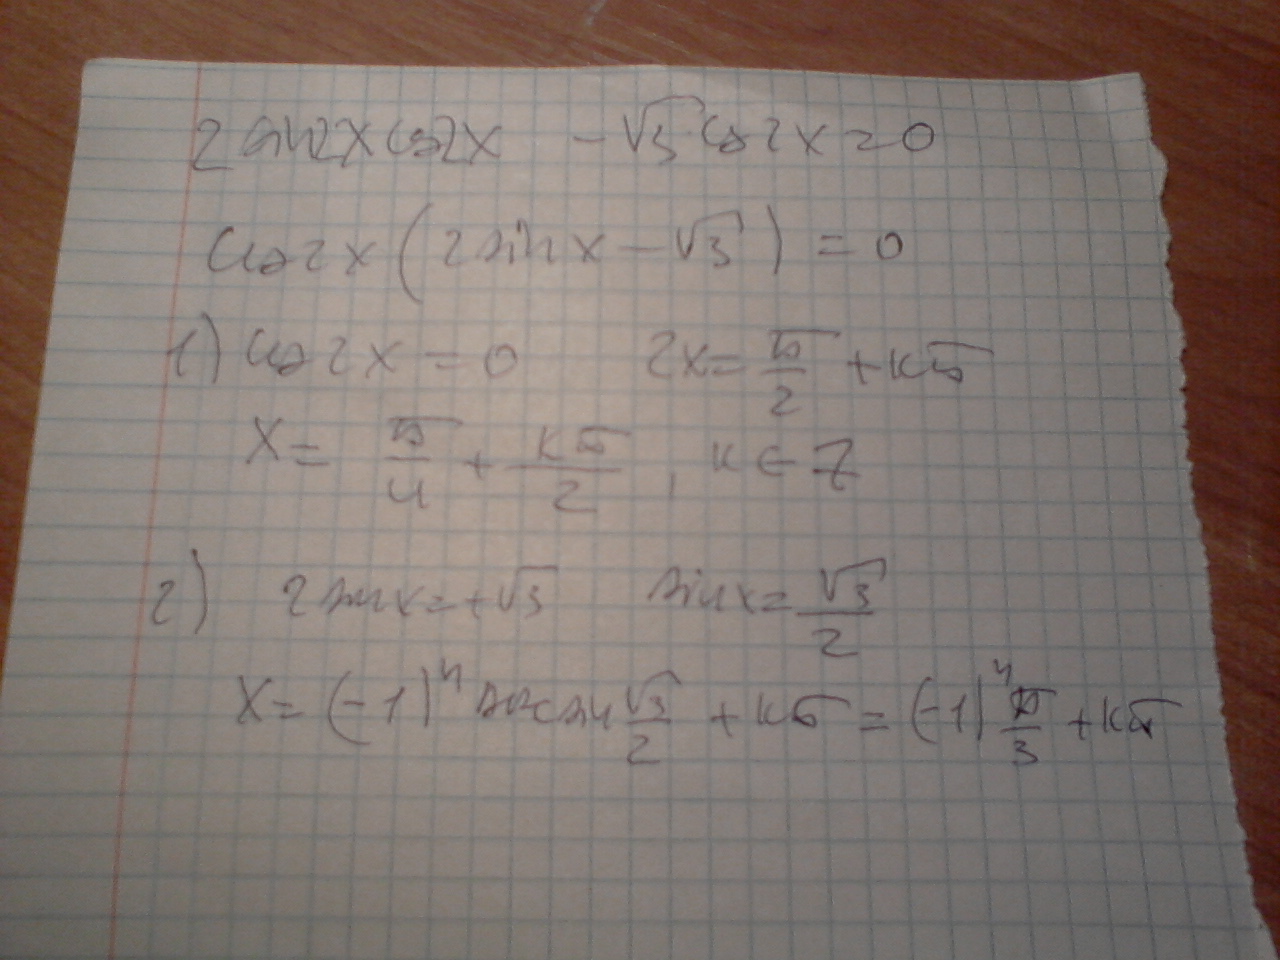 2 sin2x cos2x - √3 cos2x = 0
cos2x (2 sin x - √3) = 0
1) cos2x = 0 2x = π/2 + kπ
x = π/4 + kπ/2, k ∈ Z
2) 2 sin x = +√3 sin x = √3/2
x = (-1)^n arcsin √3/2 + kπ = (-1)^n π/3 + kπ